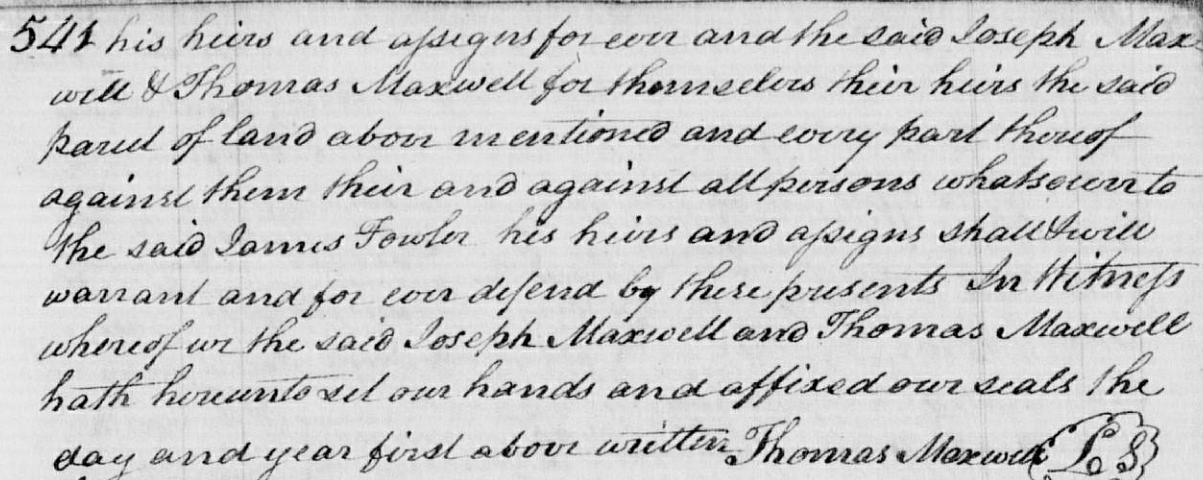 541 his heirs and assigns for ever and the said Joseph Max-
will & Thomas Maxwell for themselves their heirs the said
parcel of land above mentioned and every part thereof
against them their and against all persons whatsoever to
the said James Fowler his heirs and assigns shall & will
warrant and for ever defend by these presents In Witness
whereof we the said Joseph Maxwell and Thomas Maxwell
hath hereunto set our hands and affixed our seals the
day and year first above written Thomas Maxwell (L S)